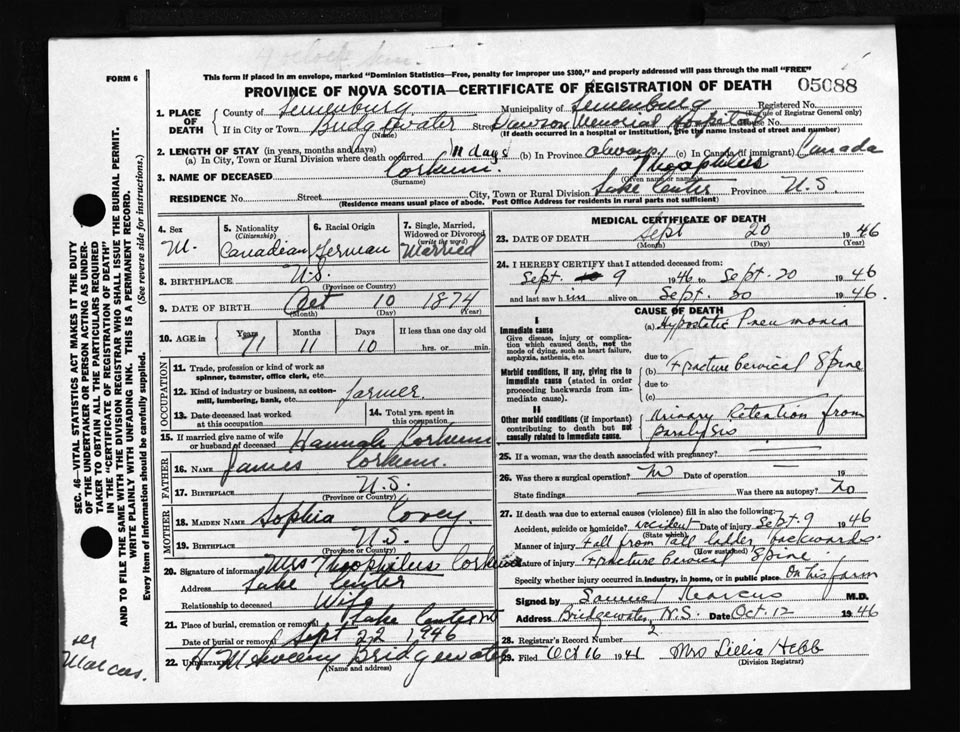 4 o'clock
FORM 6
This form if placed in an envelope, marked "Dominion Statistics—Free, penalty for improper use $300," and properly addressed will pass through the mail "FREE"
PROVINCE OF NOVA SCOTIA—CERTIFICATE OF REGISTRATION OF DEATH 05088
1. PLACE OF DEATH County of Lunenburg Municipality of Lunenburg Registered No. (For use of Registrar General only)
If in City or Town Bridgewater (Name) Street Dawson Memorial Hospital No.
(If death occurred in a hospital or institution, give the name instead of street and number)
2. LENGTH OF STAY (in years, months and days)
(a) In City, Town or Rural Division where death occurred 11 days (b) In Province always (c) In Canada (if immigrant) Canada
3. NAME OF DECEASED Corkum. (Surname) Theophilus (Given name or names)
RESIDENCE No. Street City, Town or Rural Division Lake Center Province N.S.
(Residence means usual place of abode. Post Office Address for residents in rural parts not sufficient)
4. Sex M. 5. Nationality (Citizenship) Canadian 6. Racial Origin German 7. Single, Married, Widowed or Divorced (write the word) Married
8. BIRTHPLACE N.S. (Province or Country)
9. DATE OF BIRTH Oct (Month) 10 (Day) 1874 (Year)
10. AGE in Years 71 Months 11 Days 10 If less than one day old hrs. or min.
OCCUPATION
11. Trade, profession or kind of work as spinner, teamster, office clerk, etc.
12. Kind of industry or business, as cotton-mill, lumbering, bank, etc. farmer.
13. Date deceased last worked at this occupation 14. Total yrs. spent in this occupation
15. If married give name of wife or husband of deceased Hannah Corkum
FATHER
16. NAME James Corkum.
17. BIRTHPLACE N.S. (Province or Country)
MOTHER
18. MAIDEN NAME Sophia Covey.
19. BIRTHPLACE N.S. (Province or Country)
20. Signature of informant Mrs Theophilus Corkum
Address Lake Center
Relationship to deceased Wife
21. Place of burial, cremation or removal Lake Center
Date of burial or removal Sept 22 1946
22. UNDERTAKER Sweeny Bridgewater (Name and address)
MEDICAL CERTIFICATE OF DEATH
23. DATE OF DEATH Sept (Month) 20 (Day) 1946 (Year)
24. I HEREBY CERTIFY that I attended deceased from:
Sept. 9 1946 to Sept. 20 1946
and last saw him alive on Sept. 20 1946.
CAUSE OF DEATH
I
Immediate cause
Give disease, injury or complication which caused death, not the mode of dying, such as heart failure, asphyxia, asthenia, etc.
(a) Hypostatic Pneumonia
due to
Morbid conditions, if any, giving rise to immediate cause (stated in order proceeding backwards from immediate cause).
(b) Fracture Cervical Spine
due to
(c)
II
Other morbid conditions (if important) contributing to death but not causally related to immediate cause.
Urinary Retention from paralysis
25. If a woman, was the death associated with pregnancy?
26. Was there a surgical operation? No Date of operation 19
State findings Was there an autopsy? No
27. If death was due to external causes (violence) fill in also the following:
Accident, suicide or homicide? accident (State which) Date of injury Sept. 9 1946
Manner of injury Fall from tall ladder backwards. (How sustained)
Nature of injury Fracture Cervical Spine
Specify whether injury occurred in industry, in home, or in public place. On his farm
Signed by Samuel Marcus M.D.
Address Bridgewater, N.S. Date Oct. 12 1946
28. Registrar's Record Number 2
29. Filed Oct 16 1941 Mrs Lillia Hebb (Division Registrar)
SEC. 46—VITAL STATISTICS ACT MAKES IT THE DUTY
OF THE UNDERTAKER OR PERSON ACTING AS UNDER-
TAKER TO OBTAIN ALL THE PARTICULARS REQUIRED
IN THE "CERTIFICATE OF REGISTRATION OF DEATH"
AND TO FILE THE SAME WITH THE DIVISION REGISTRAR WHO SHALL ISSUE THE BURIAL PERMIT.
WRITE PLAINLY WITH UNFADING INK. THIS IS A PERMANENT RECORD.
Every item of information should be carefully supplied. (See reverse side for instructions.)
Marcus.